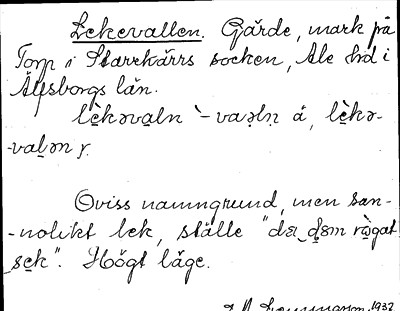 Lekevallen. Gärde, mark på
Torp i Starrkärrs socken, Ale hd i
Älfsborgs län.
lèkəvaln `-vaəln á, lèkə-
-valən y.
Oviss namngrund, men san-
-nolikt lek, ställe "dɛ dɛm rògat
sek". Högt läge.
1932